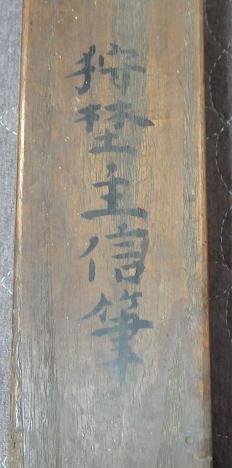 狩埜主信筆